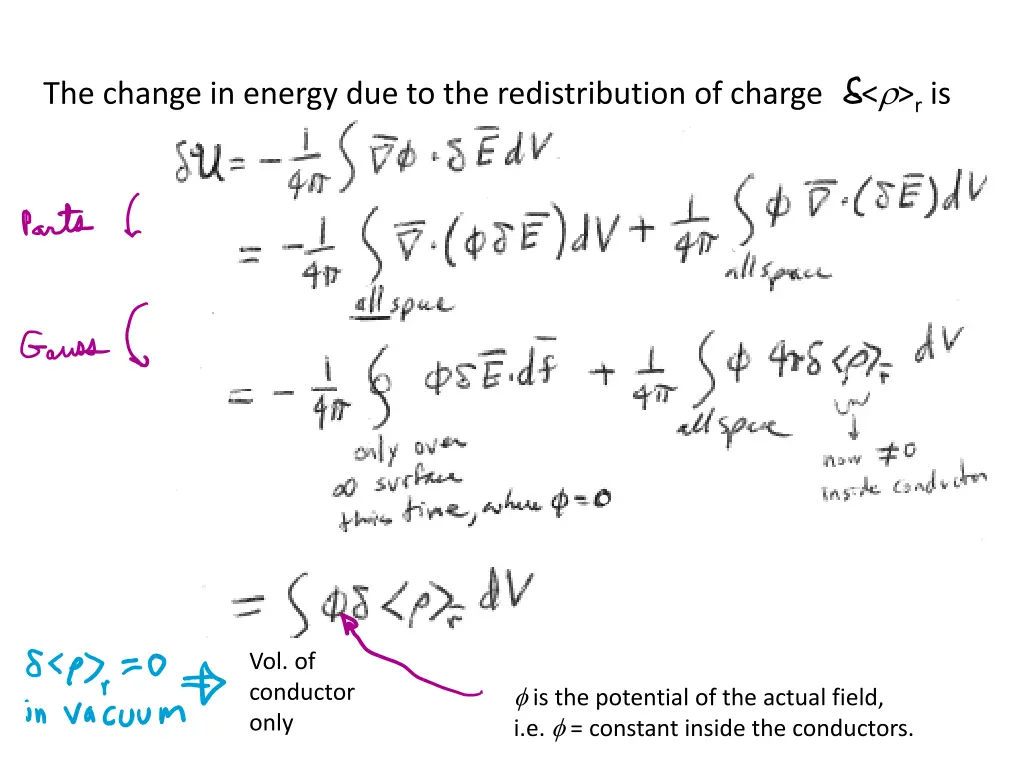 The change in energy due to the redistribution of charge δ<ρ>r is
δU = - 1/4π ∫ ∇̄ϕ · δĒ dV
Parts
= - 1/4π ∫ ∇̄·(ϕδĒ)dV + 1/4π ∫ ϕ ∇̄·(δĒ)dV
all space all space
Gauss
= - 1/4π ∮ ϕδĒ·df̄ + 1/4π ∫ ϕ 4πδ<ρ>r̄ dV
only over all space
∞ surface now ≠0
this time, where ϕ=0 inside conductor
= ∫ ϕδ<ρ>r̄ dV
δ<ρ>r =0 ⇒
in vacuum
Vol. of
conductor
only
ϕ is the potential of the actual field,
i.e. ϕ = constant inside the conductors.